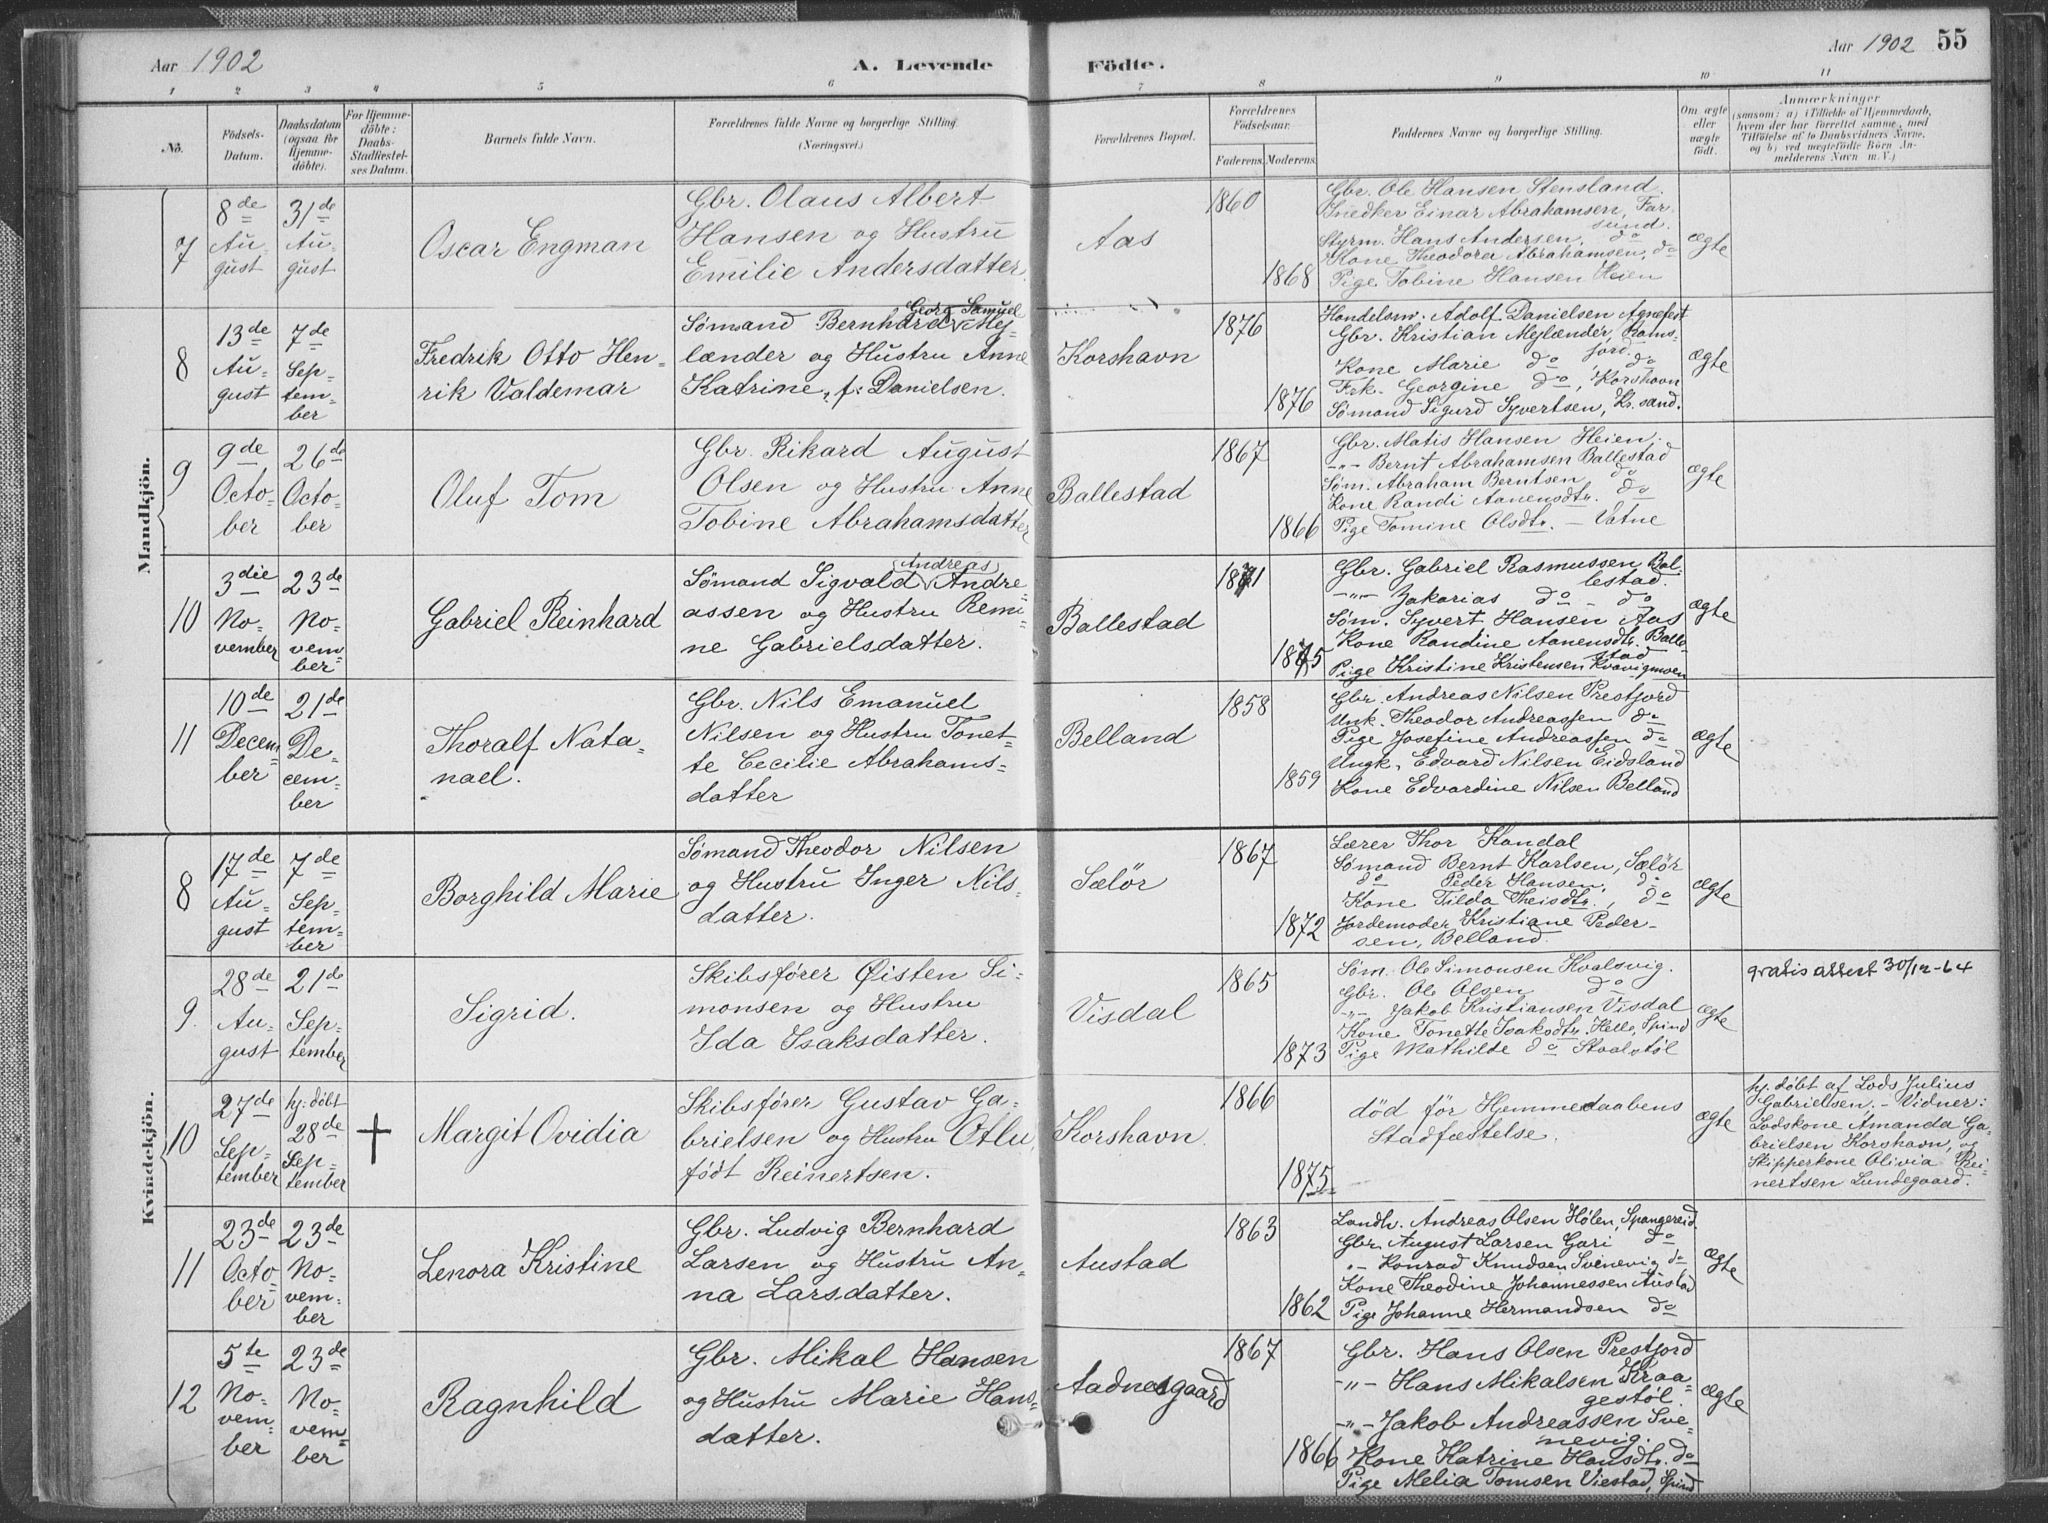 Aar 1902
A. Levende
Födte.
Aar 1902
55
1 2 3 4 5 6 7 8 9 10 11
No.
Födsels-
Datum.
Daabsdatum
(ogsaa for
Hjemme-
döbte).
For Hjemme-
döbte:
Daabs-
Stadfæstel-
ses Datum.
Barnets fulde Navn.
Forældrenes fulde Navne og borgerlige Stilling.
(Næringsvei.)
Forældrenes Bopæl.
Forældrenes
Födselsaar.
Faderens.
Moderens.
Faddernes Navne og borgerlige Stilling.
Om ægte
eller
uægte
födt.
Anmærkninger
(saasom: a) i Tilfælde af Hjemmedaab,
hvem der har forrettet samme, med
Tilföielse af to Daabsvidners Navne,
og b) ved uægtefödte Börn An-
melderens Navn m. V.)
Mandkjön.
7
8de
Au-
gust
31de
Au-
gust
Oscar Engman
Gbr. Olaus Albert
Hansen og Hustru
Emilie Andersdatter
Aas
1860
1868
Gbr. Ole Hansen Stensland.
Snedker Einar Abrahamsen, Far-
sund.
Styrm. Hans Andersen, do
Kone Theodora Abrahamsen, do
Pige Tobine Hansen Heien
Ægte
8
13de
Au-
gust
7de
Sep-
tem-
ber
Fredrik Otto Hen-
rik Valdemar
Georg Samuel
Sømand Bernhard Mej-
lænder og Hustru Anne
Katrine, f. Danielsen.
Korshavn
1876
1876
Handelsm. Adolf Danielsen Agnefest
Gbr. Kristian Mejlænder, Rams-
fjord.
Kone Marie do, do
Frk. Georgine do, Korshavn
Sømand Sigurd Syvertsen, Kr.sand.
Ægte
9
9de
Octo-
ber
26de
Octo-
ber
Oluf Tom
Gbr. Rikard August
Olsen og Hustru Anne
Tobine Abrahamsdatter
Ballestad
1867
1866
Gbr. Matis Hansen Heien.
-"- Bernt Abrahamsen Ballestad
Søm. Abraham Berntsen do
Kone Randi Aanensdtr. do
Pige Tomine Olsdtr. - Vatne
Ægte
10
3die
No-
vember
23de
No-
vem-
ber
Gabriel Reinhard
Andreas
Sømand Sigvald Andre-
assen og Hustru Remi-
ne Gabrielsdatter.
Ballestad
1871
1875
Gbr. Gabriel Rasmussen Bal-
lestad.
-"- Zakarias do - do
Søm. Syvert Hansen Aas
Kone Randine Aanensdtr. Balle-
stad
Pige Kristine Kristensen Kvavigmoen
Ægte
11
10de
Decem-
ber
21de
De-
cem-
ber
Thoralf Nata-
nael.
Gbr. Nils Emanuel
Nilsen og Hustru Tonet-
te Cecilie Abrahams-
datter
Belland
1858
1859
Gbr. Andreas Nilsen Prestfjord
Unk. Theodor Andreassen do
Pige Josefine Andreassen do
Ungk. Edvard Nilsen Eidsland
Kone Edvardine Nilsen Belland
Ægte
Kvindekjön.
8
17de
Au-
gust
7de
Sep-
tem-
ber
Borghild Marie
Sømand Theodor Nilsen
og Hustru Inger Nils-
datter.
Sælör
1867
1872
Lærer Thor Kandal
Sømand Bernt Karlsen, Sælör
do Peder Hansen, do
Kone Tilda Theisdtr., do
Jordemoder Kristiane Peder-
sen, Belland.
Ægte
9.
28de
Au-
gust
21de
Sep-
tember
Sigrid.
Skibsfører Øisten Si-
monsen og Hustru
Ida Isaksdatter.
Visdal
1865
1873
Søm. Ole Simonsen Kvalsvig.
Gbr. Ole Olsen do
-"- Jakob Kristiansen Visdal
Kone Tonette Isaksdtr. Helle, Spind
Pige Mathilde do Staalstøl
Ægte
gratis attest 30/12-64
10
27de
Sep-
tember
hj. døbt
28de
Sep-
tember
Margit Ovidia
Skibsfører Gustav Ga-
brielsen og Hustru Otlu,
født Reinertsen.
Korshavn.
1866
1875
død før Hjemmedaabens
Stadfæstelse.
Ægte
hj. døbt af Lods Julius
Gabrielsen. - Vidner:
Lodskone Amanda Ga-
brielsen Korshavn, og
Skipperkone Olivia Rei-
nertsen Lundegaard.
11
23de
Octo-
ber
23de
No-
vem-
ber
Lenora Kristine
Gbr. Ludvig Bernhard
Larsen og Hustru An-
na Larsdatter.
Austad
1863
1862
Landh. Andreas Olsen Hølen, Spangereid
Gbr. August Larsen Gari do
-"- Konrad Knudsen Svenevig do
Kone Theodine Johannessen Austad
Pige Johanne Hermandsen do
Ægte
12
5te
No-
vem-
ber
23de
No-
vem-
ber
Ragnhild
Gbr. Mikal Hansen
og Hustru Marie Hans-
datter.
Aadnesgaard
1867
1866
Gbr. Hans Olsen Prestfjord
-"- Hans Mikalsen Kraa-
gestøl.
-"- Jakob Andreassen Sve-
nevig.
Kone Katrine Hansdtr. do
Pige Melia Tomsen Viestad, Spind
Ægte